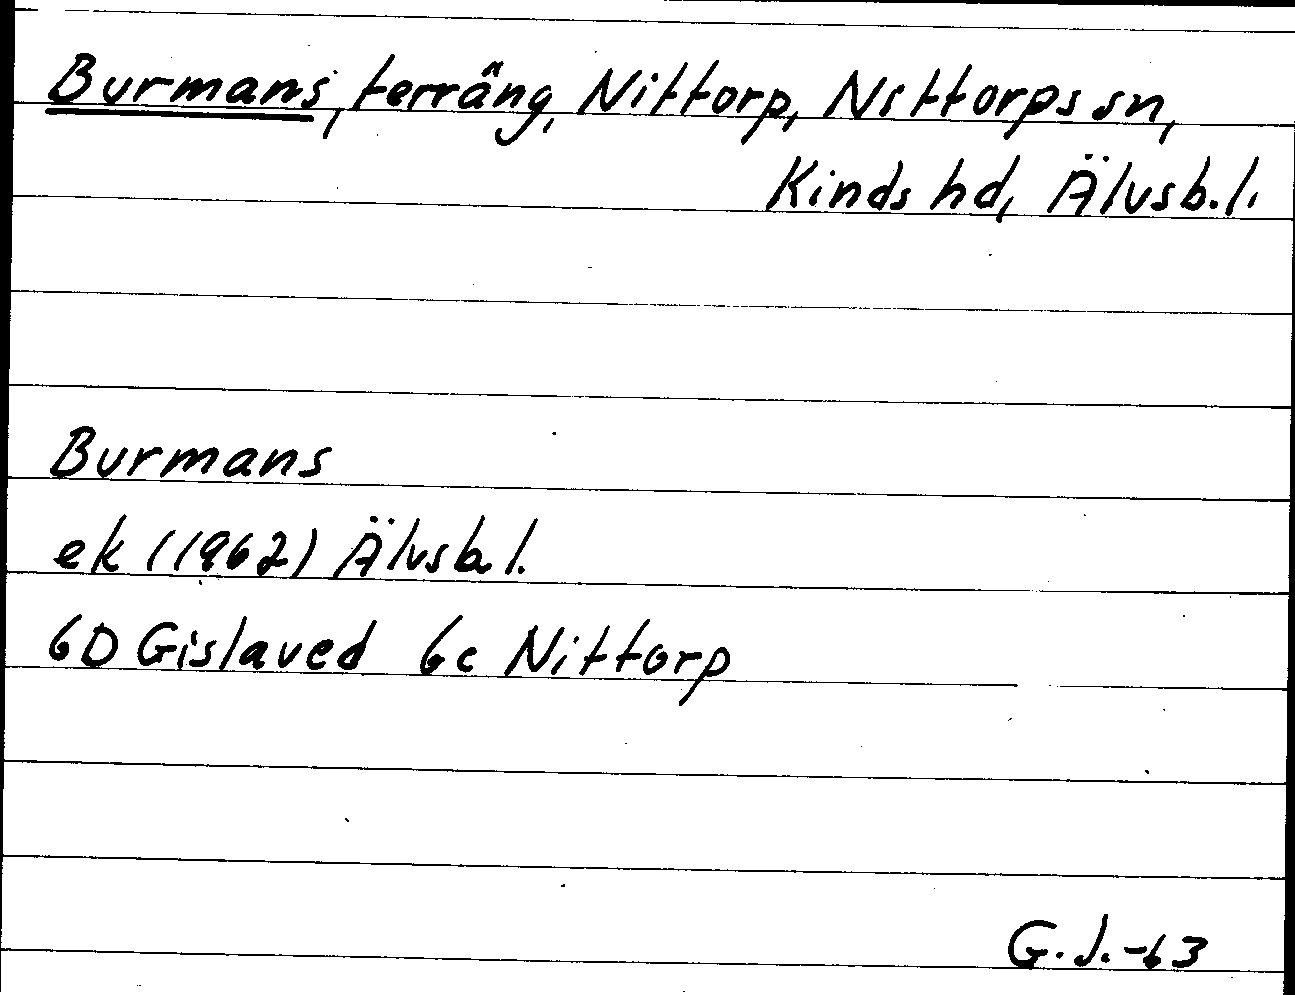 Burmans, terräng, Nittorp, Nittorps sn,
Kinds hd, Älvsb.l.
Burmans
ek (1962) Älvsb.l.
6D Gislaved 6c Nittorp
G.J.-63